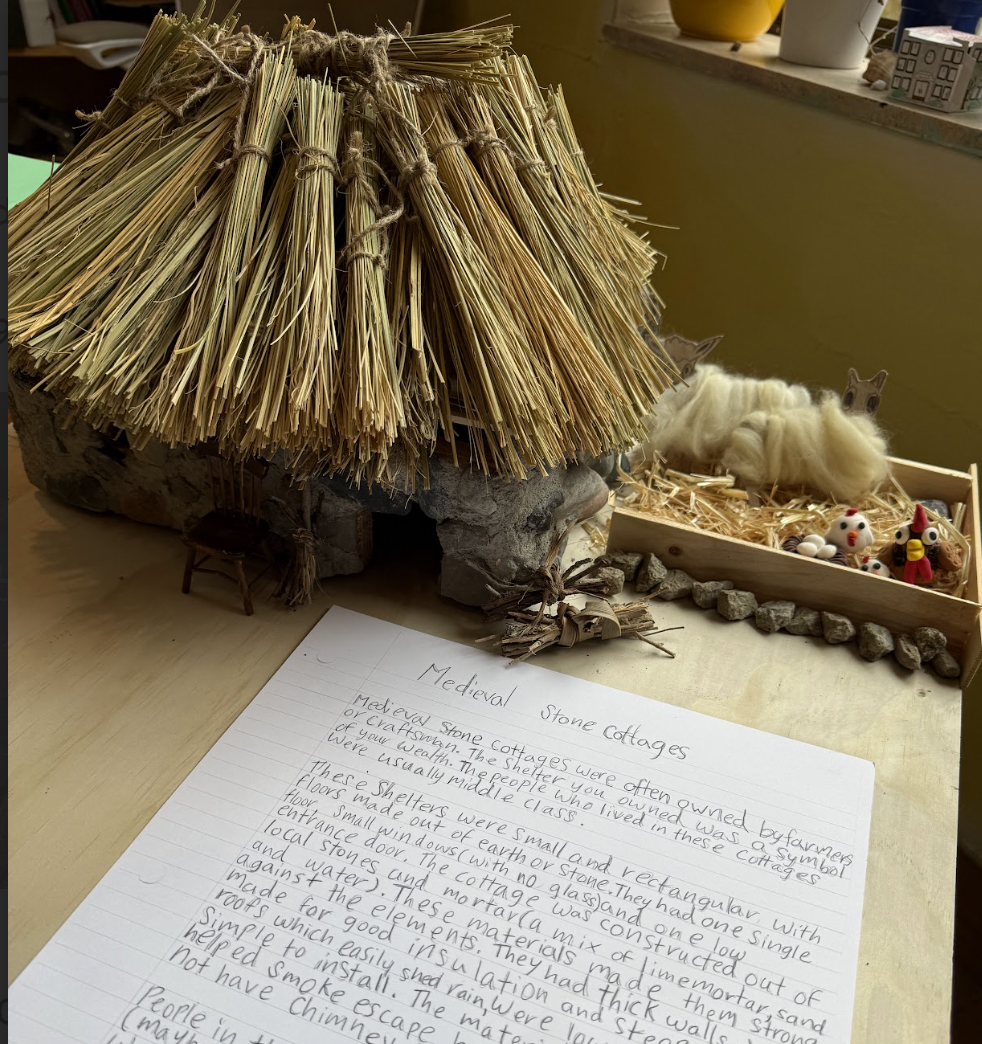 Medieval Stone Cottages
Medieval Stone Cottages were often owned by farmers
or craftsman. The Shelter you owned was a symbol
of your wealth. The people who lived in these cottages
were usually middle class.
These shelters were small and rectangular with
floors made out of earth or stone. They had one single
floor, small windows (with no glass) and one low
entrance door. The cottage was constructed out of
local stones and mortar (a mix of limemortar, sand
and water). These materials made them strong
against the elements. They had thick walls
made for good insulation and steep
roofs which easily shed rain, were low
simple to install. The mater
helped smoke escape
not have Chimney
People in th
(mayb